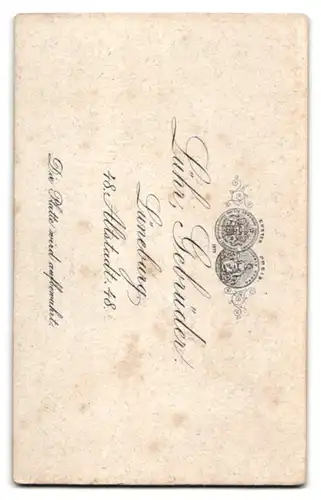 ERSTER PREIS
Lühr, Gebrüder.
Lüneburg
18. Altstadt. 18.
Die Platte wird aufbewahrt.